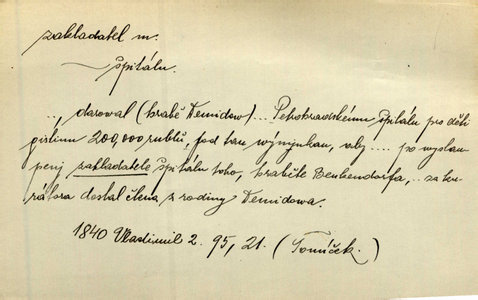 zakladatel m.
špitálu.
.., daroval (hrabě Demidow)... Petrohradskému špitálu pro děti
jistinu 200,000 rublů, pod tau výmjnkau, aby .... po wystau-
penj zakladatele špitálu toho, hraběte Benkendorfa, .. za ku-
rátora dostal člena z rodiny Demidowa.
1840 Vlastimil 2. 95, 21. (Tomíček.)